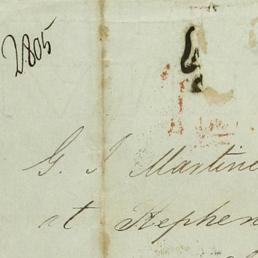 2805
G. J. Martine
at Hephen